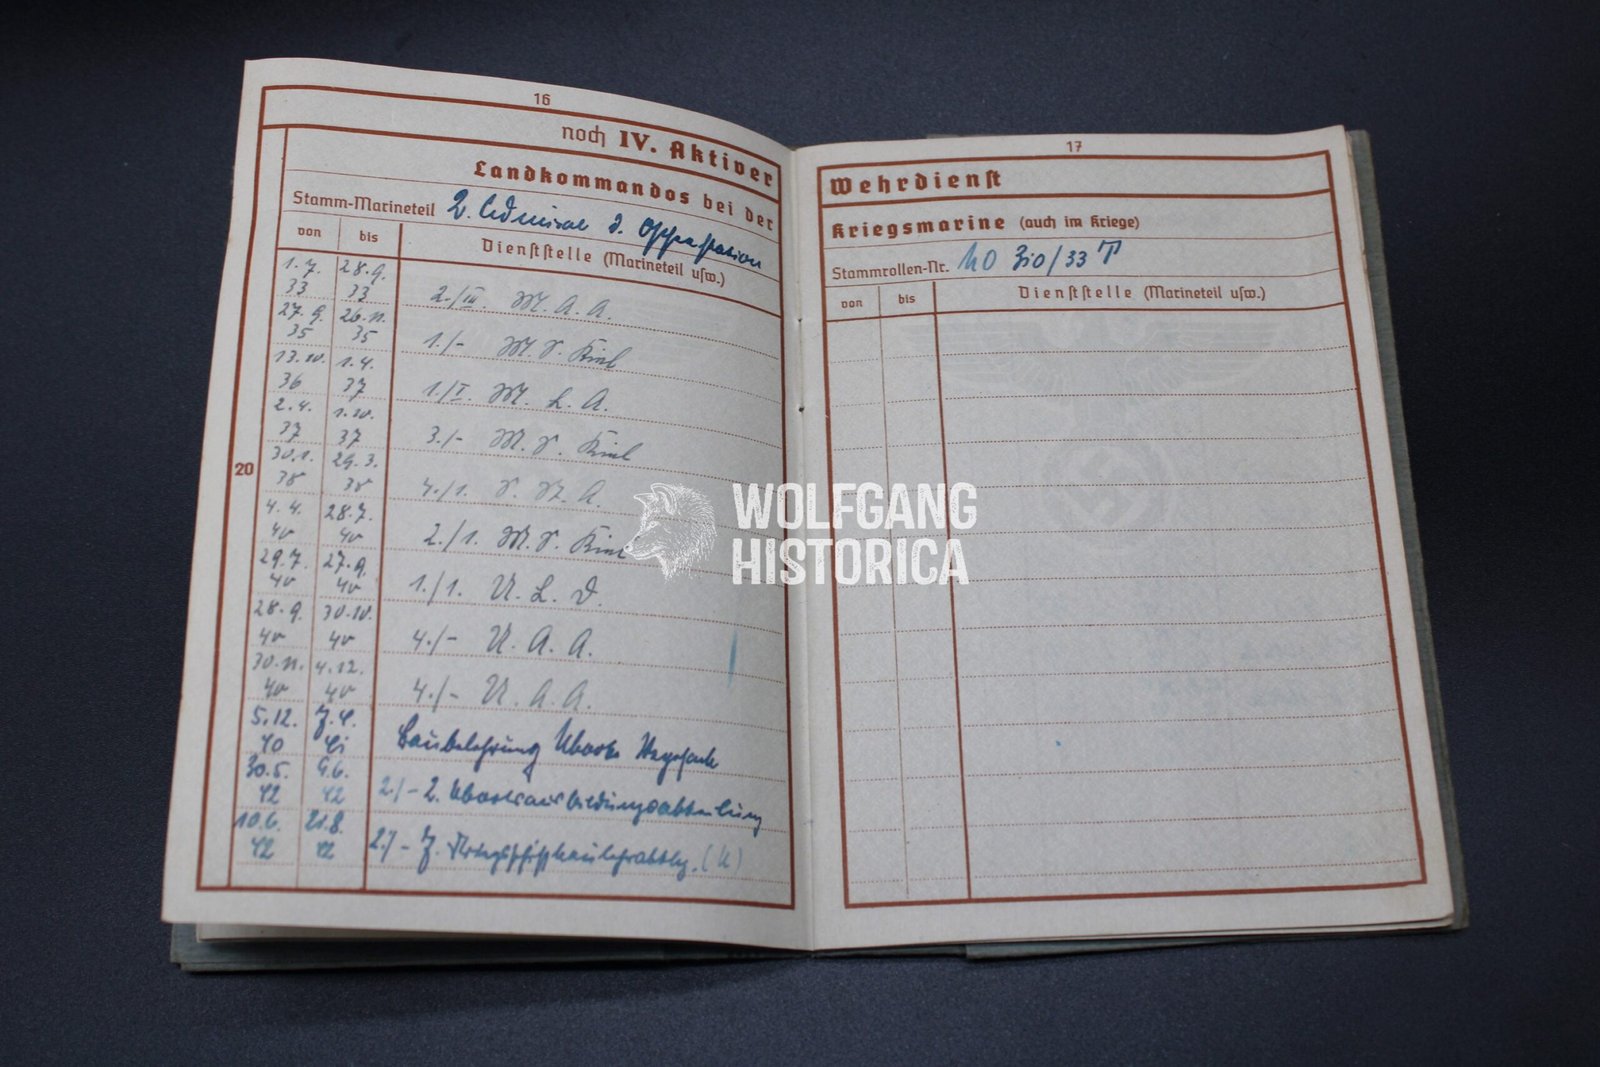 16
noch IV. Aktiver
Landkommandos bei der
Stamm-Marineteil 2. Admiral d. Ostseestation
von bis Dienststelle (Marineteil usw.)
20
1.7. 33 28.9. 33 2./III. M. A. A.
27.9. 35 26.11. 35 1./- M. S. Kiel
13.10. 36 1.4. 37 1./I. M. L. A.
2.4. 37 1.10. 37 3./- M. S. Kiel
30.1. 38 29.3. 38 4./1. S. St. A.
4.4. 40 28.7. 40 2./1. M. S. Kiel
29.7. 40 27.9. 40 1./1. U. L. D.
28.9. 40 30.10. 40 4./- U. A. A.
30.11. 40 4.12. 40 4./- U. A. A.
5.12. 40 41 Baubelehrung Uboote Vegesack
30.5. 42 9.6. 42 2./- 2. Ubootsausbildungsabteilung
10.6. 42 21.8. 42 2./- 7. Kriegsschiffbaulehrabtlg. (U)
17
Wehrdienst
Kriegsmarine (auch im Kriege)
Stammrollen-Nr. 310/33 T
von bis Dienststelle (Marineteil usw.)
WOLFGANG
HISTORICA